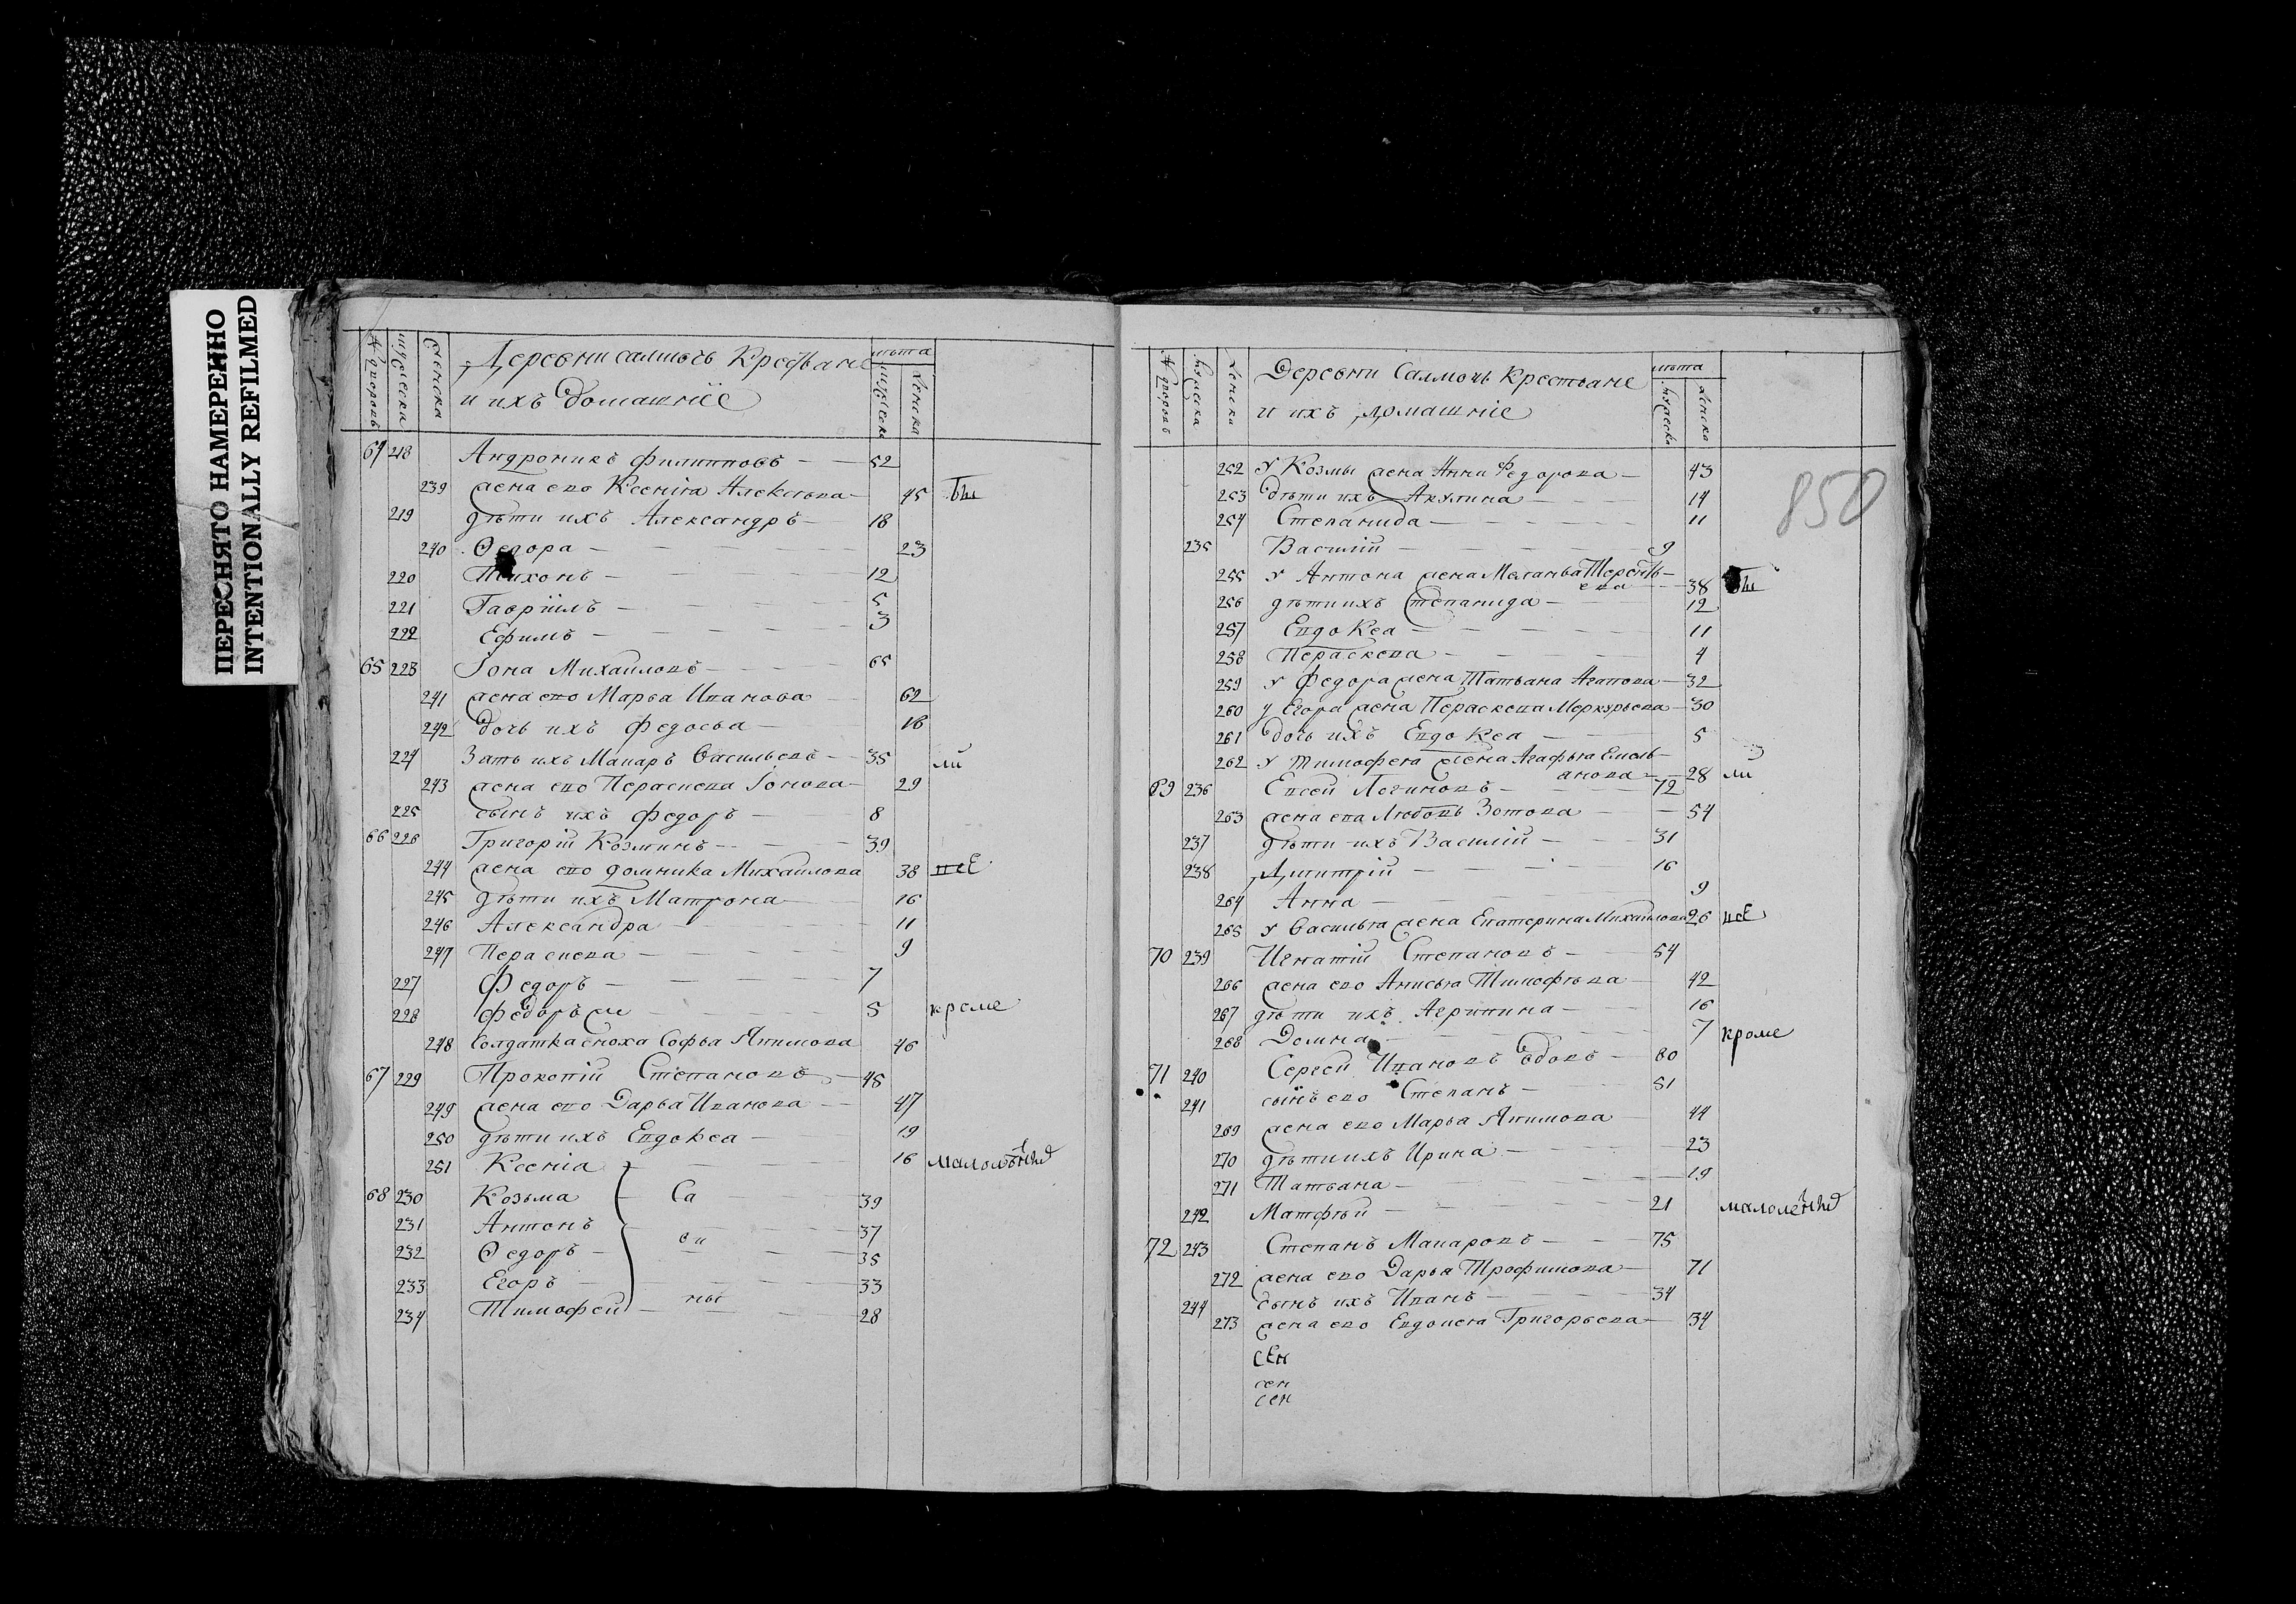 ПЕРЕСНЯТО НАМЕРЕННО
INTENTIONALLY REFILMED
№ дворовъ мужеска женска Деревни салмочь Крестьяне лѣта
и ихъ домашніе мужеска женска
64 218 Андроникъ филипповъ 52
239 жена ево Ксенія Алексѣева 45 бы
219 дѣти ихъ Александръ 18
240 Ѳедора 23
220 Тихонъ 12
221 Гавріилъ 5
222 Ефимъ 3
65 223 Іона Михаиловъ 65
241 жена ево Марья Иванова 62
242 дочь ихъ федосья 18
224 Зать ихъ Макаръ Васильевъ 35 ли
243 жена ево Параскева Іонова 29
225 сынъ ихъ федоръ 8
66 226 Григорій Козминъ 39
244 жена ево домника Михаилова 38 всЕ
245 дѣти ихъ Матрона 16
246 Александра 11
247 Пераскева 9
227 Федоръ 7
228 федоръ же 5 кроме
248 Солдатка сноха Софья Якимова 46
67 229 Прокопій Степановъ 48
249 жена ево Дарья Иванова 47
250 дѣти ихъ Евдокеа 19
251 Ксеніа 16 малолѣтнхъ
68 230 Козьма Са 39
231 Антонъ 37
232 Ѳедоръ ви 35
233 Егоръ 33
234 Тимофей ны 28
№ дворовъ мужеска женска Деревни Салмочь крестьяне лѣта
и ихъ домашніе мужеска женска
850
252 У Козмы жена Анна Федорова 43
253 дѣти ихъ Акулина 14
254 Степанида 11
235 Василій 9
255 У Антона жена Меланья Теренть
ева 38 бы
256 дѣти ихъ Степанида 12
257 Евдокеа 11
258 Пераскева 4
259 У Федора жена Татьана Агапова 32
260 у Егора жена Пераскева Меркурьева 30
261 дочь ихъ Евдокеа 5
262 У Тимофея жена Агафья Емель
анова 28 ли
69 236 Евсей Логиновъ 72
263 жена ева Любовь Зотова 54
237 дѣти ихъ Василій 31
238 Дмитрій 16
264 Анна 9
265 У Василья жена Екатерина Михаилова 26 всЕ
70 239 Игнатій Степановъ 54
266 жена ево Анисья Тимофѣва 42
267 дѣти ихъ Агрипина 16
268 Домна 7 кроме
71 240 Сергей Ивановъ вдовъ 80
241 сынъ ево Степанъ 51
269 жена ево Марья Якимова 44
270 дѣти ихъ Ирина 23
271 Татьана 19
242 Матфѣй 21 малолетнхъ
72 243 Степанъ Макаровъ 75
272 жена ево Дарья Трофимова 71
244 сынъ ихъ Иванъ 34
273 жена ево Евдокея Григорьева 34
сЕн
сен
сен